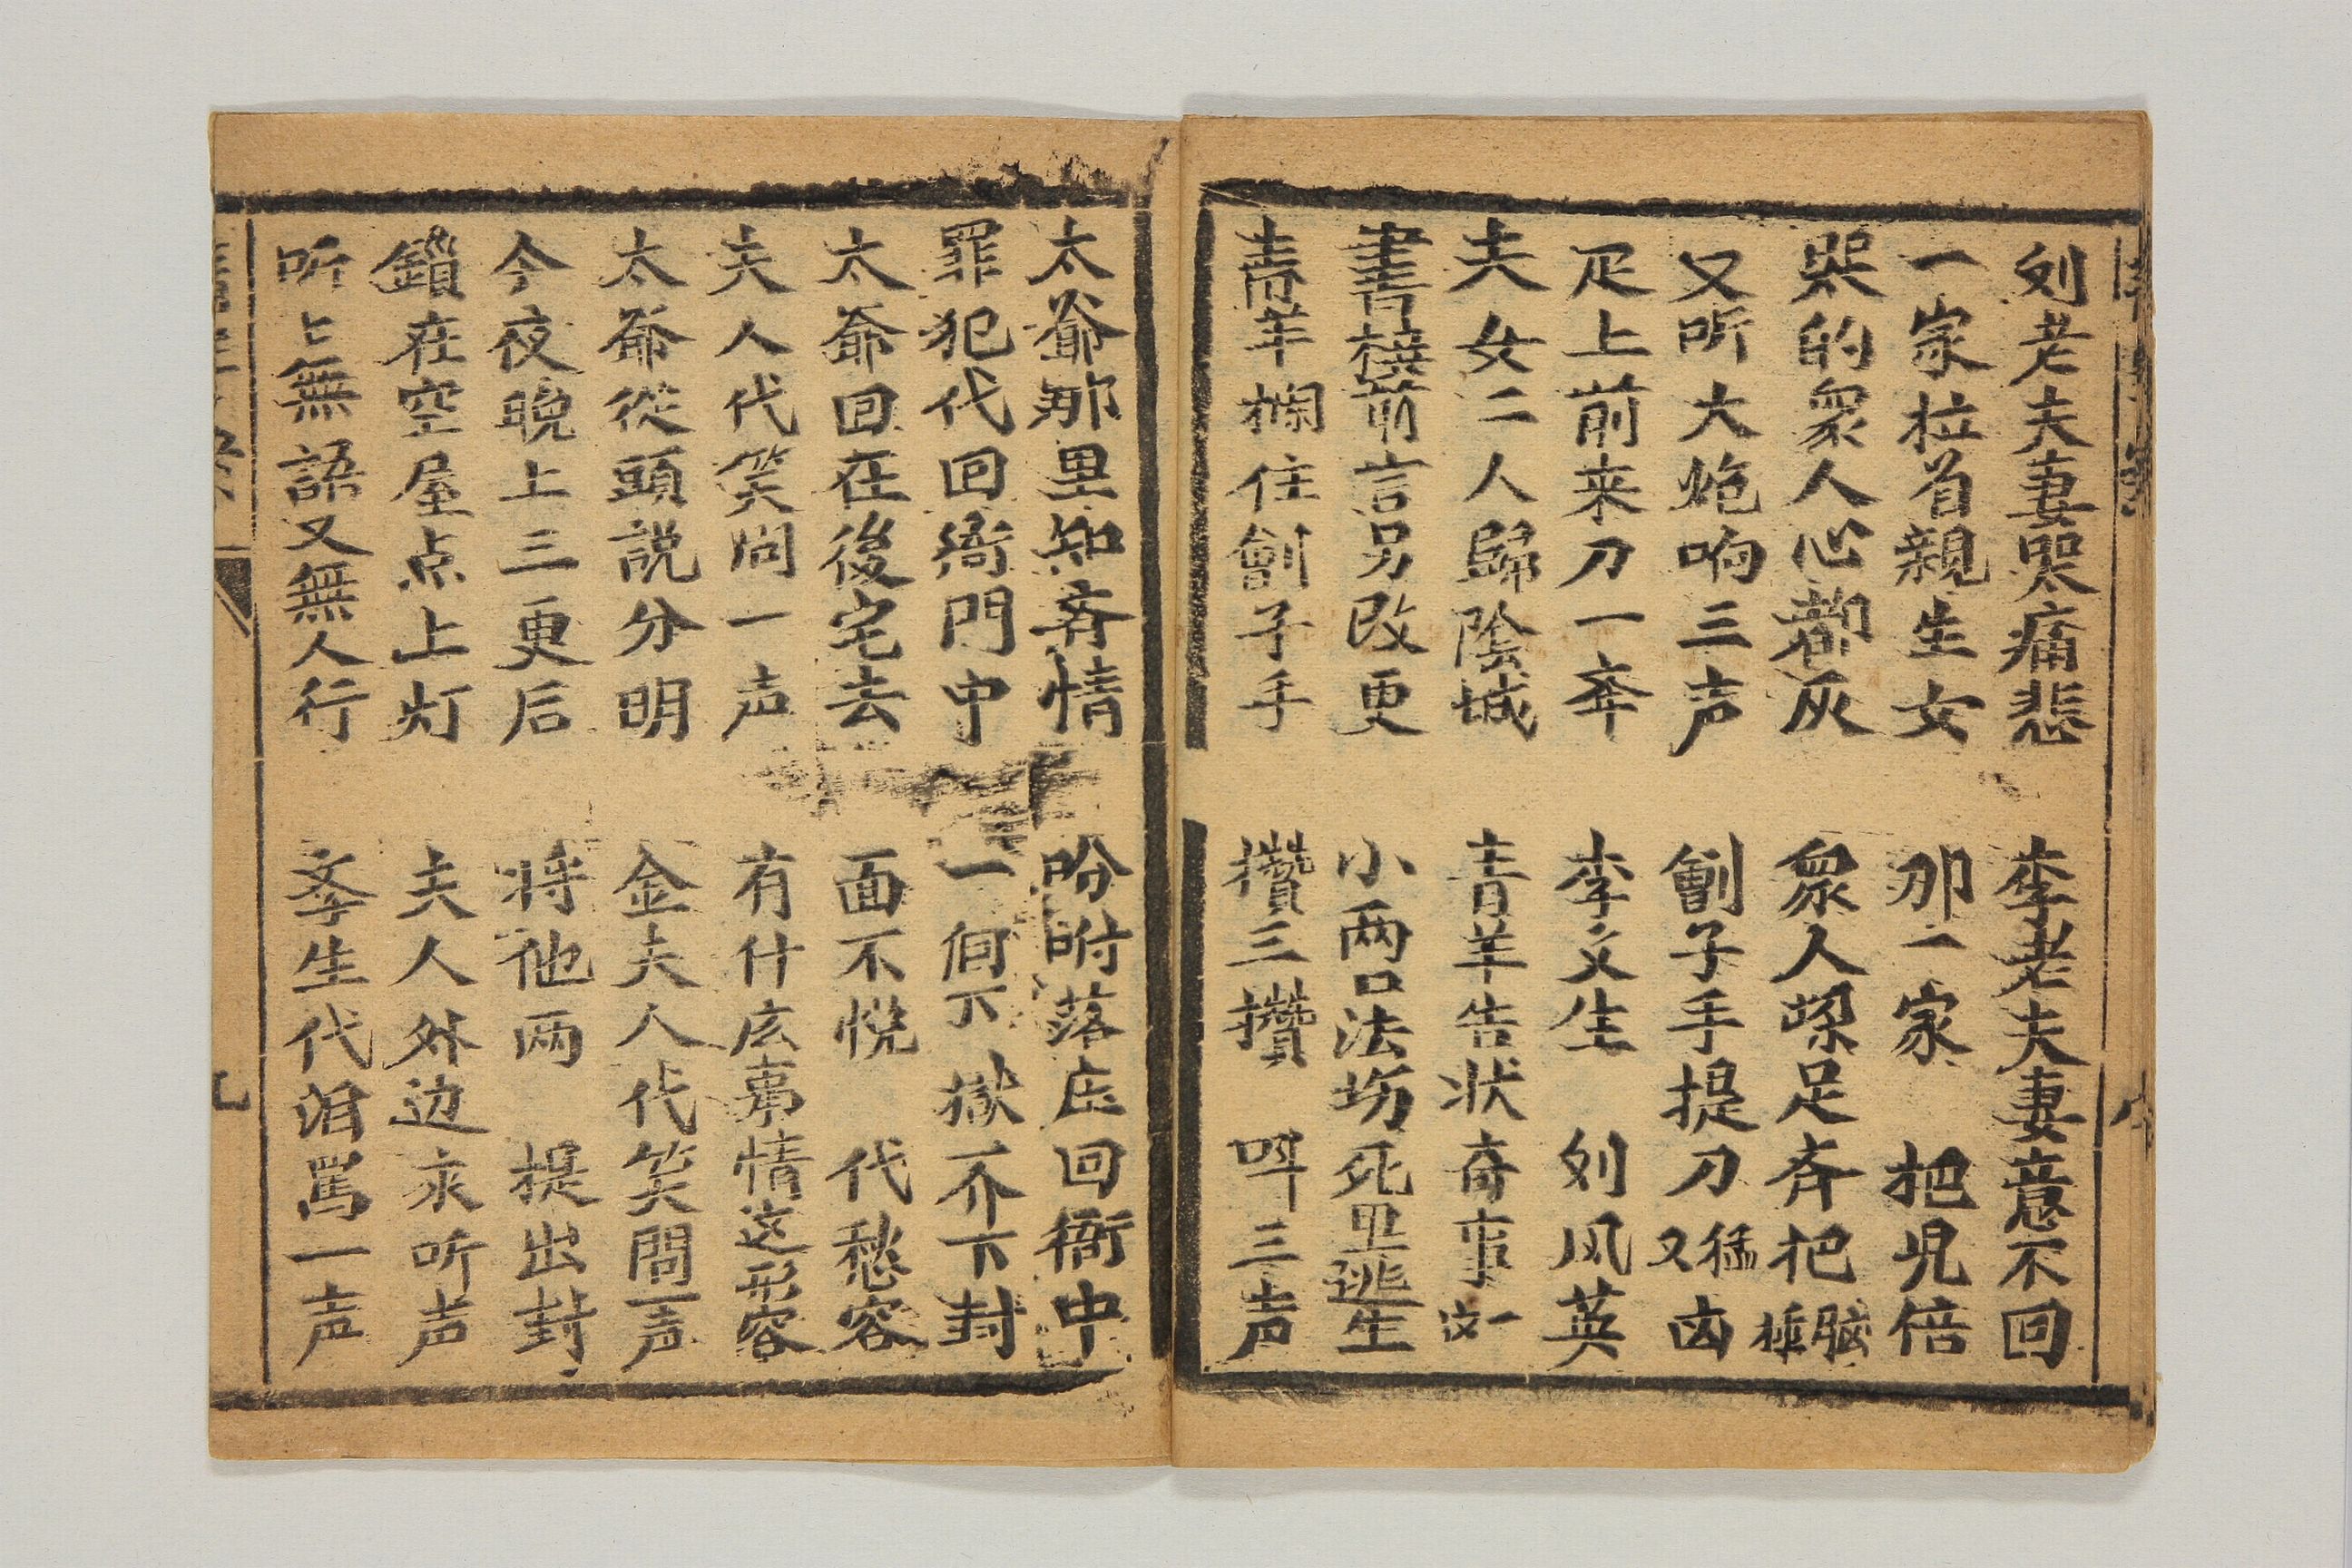 刘老夫妻哭痛悲　李老夫妻意不回
一家拉着親生女　那一家　把児倍
哭的衆人心都灰　衆人跺足斉把脳捶
又听大炮响三声　劊子手手提刀又猛凶
疋上前来刀一奔　李文生　刘风英
夫女二人歸陰城　青羊告状奇事一
書横前言另改更　小两口法塲死里逃生
青羊攔住劊子手　攢三攢　呌三声
太爺那里知斉情　吩咐落庒回衙中
罪犯代回衙門中　一個下獄不下封
太爺回在後宅去　面不悅　代愁容
夫人代笑问一声　有什庅事情这形容
太爷從頭説分明　金夫人代笑問一声
今夜晚上三更后　将他两　提出封
鎖在空屋点上灯　夫人外边求听声
听上無語又無人行　李生代泪罵一声